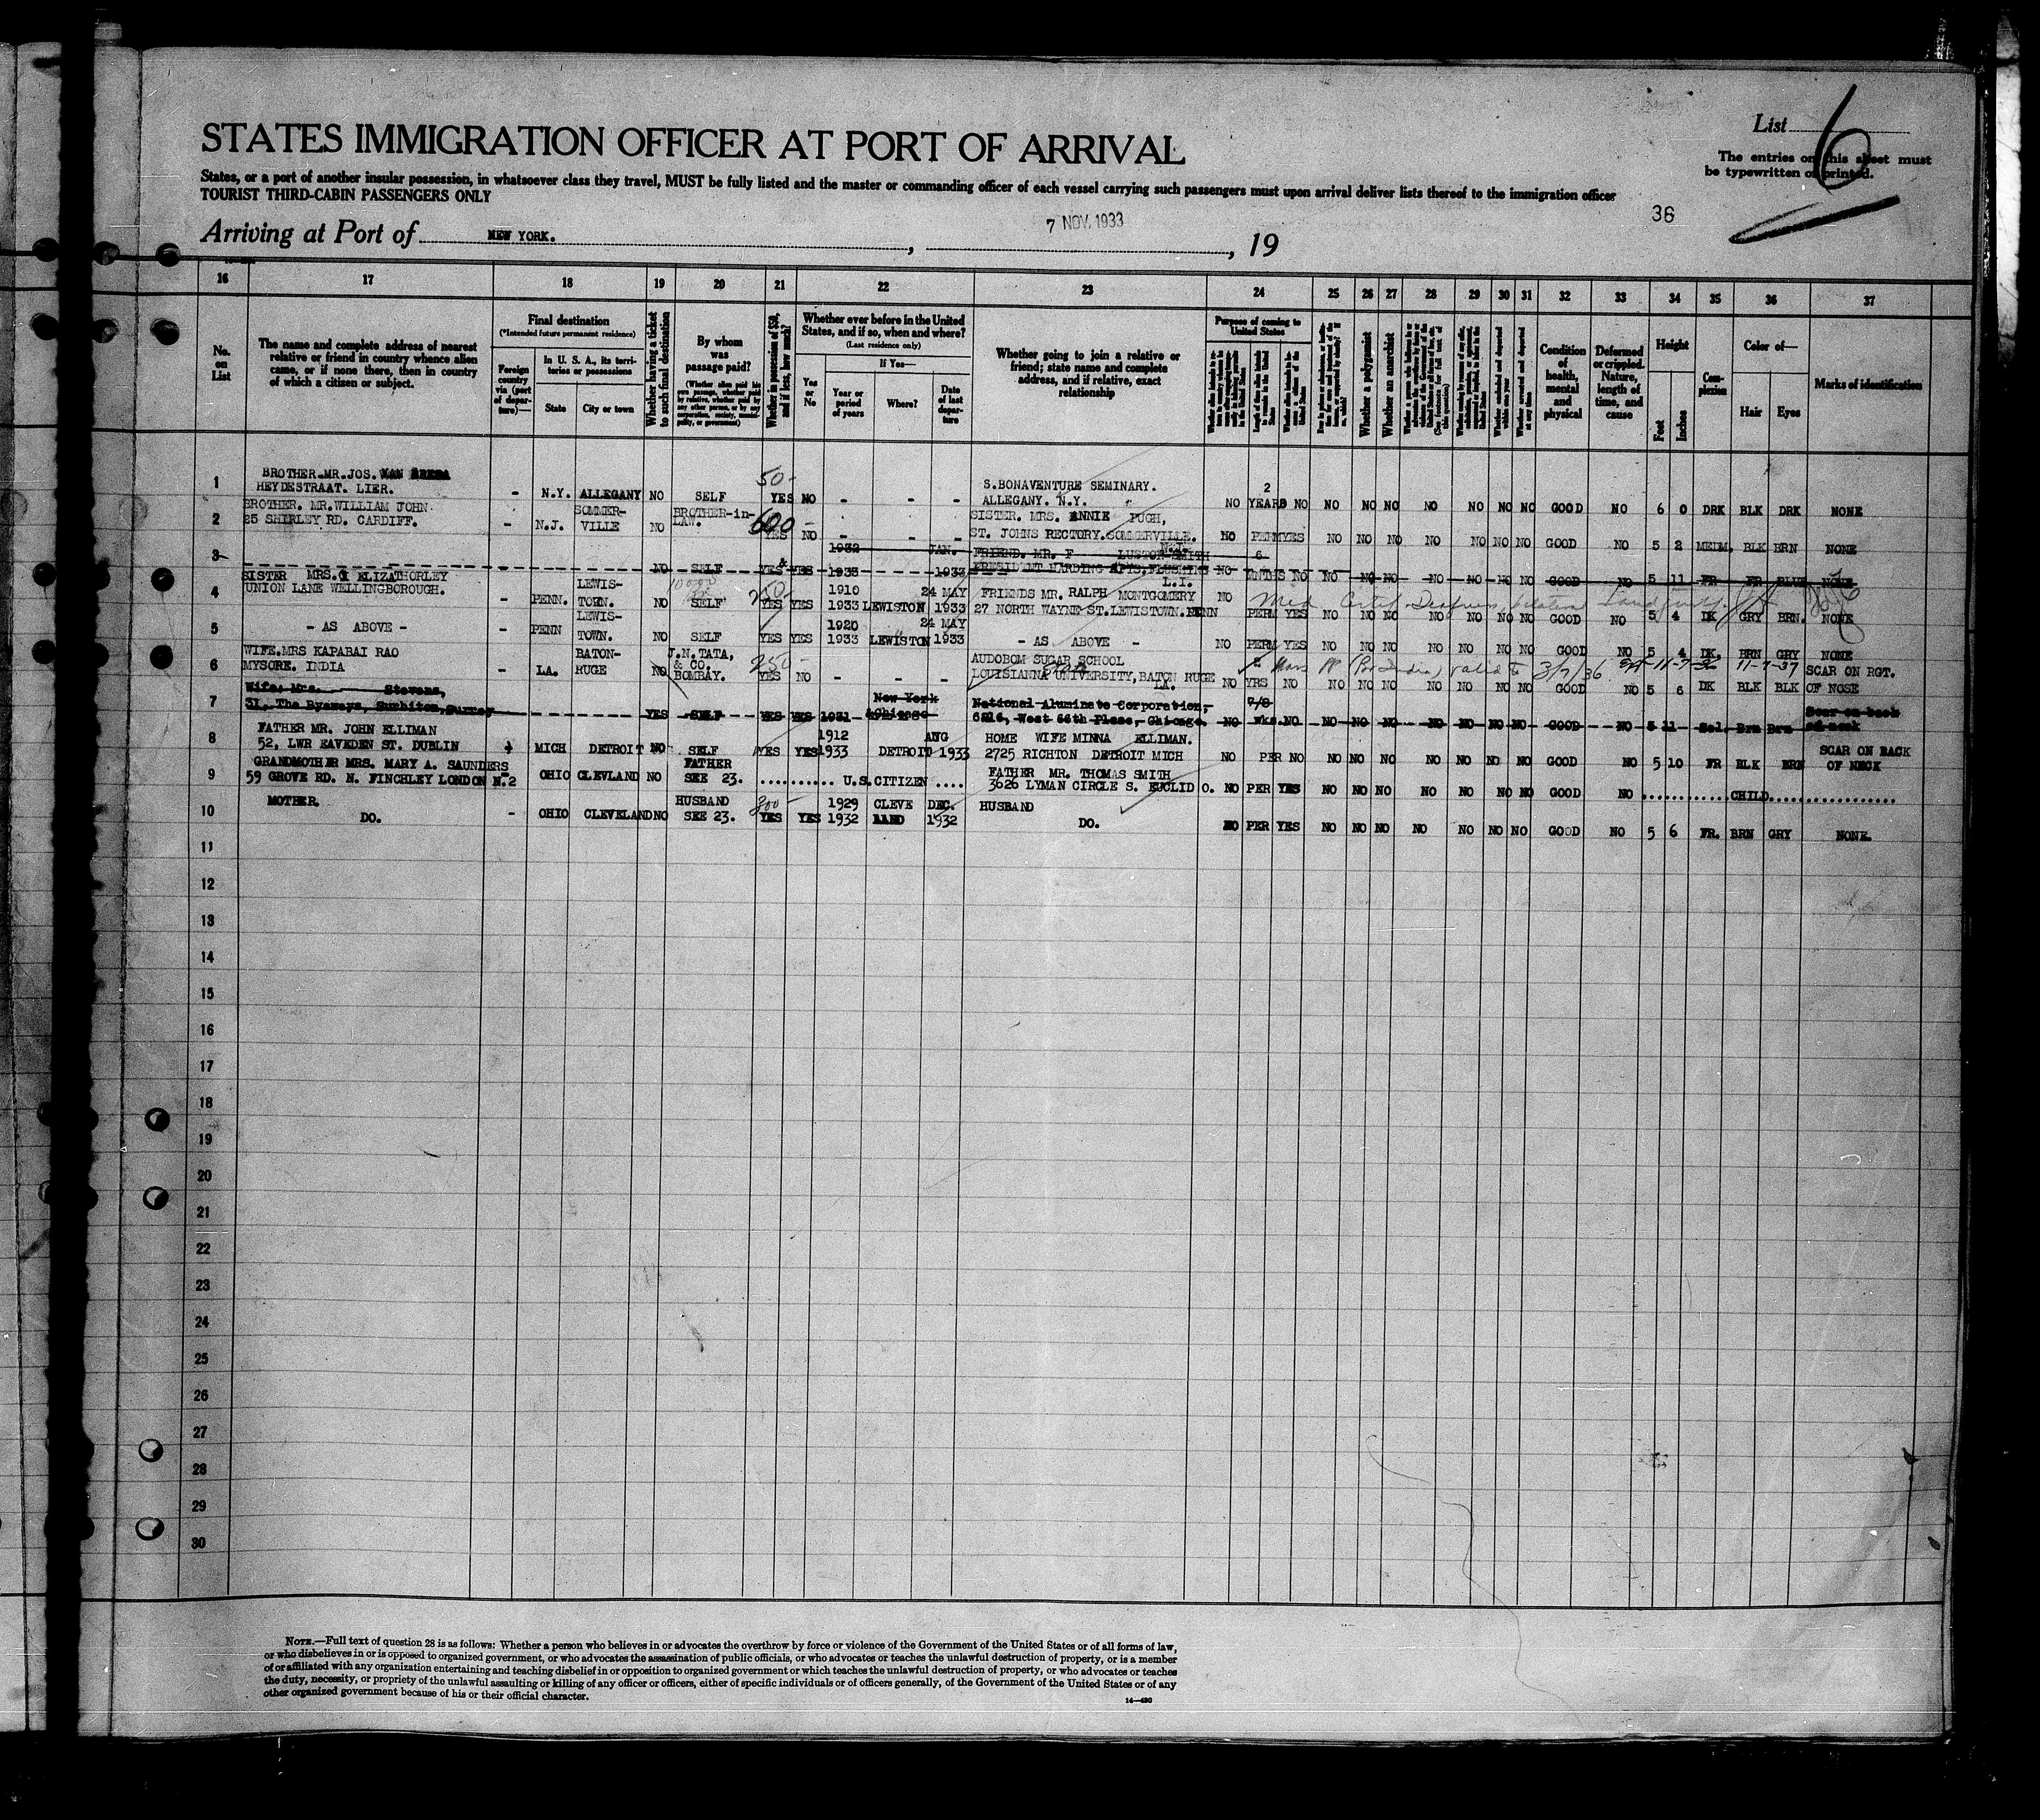 List 6
The entries on this sheet must
be typewritten or printed.
STATES IMMIGRATION OFFICER AT PORT OF ARRIVAL
States, or a port of another insular possession, in whatsoever class they travel, MUST be fully listed and the master or commanding officer of each vessel carrying such passengers must upon arrival deliver lists thereof to the immigration officer
TOURIST THIRD-CABIN PASSENGERS ONLY
36
Arriving at Port of NEW YORK. , 7 NOV. 1933 , 19
16 17 18 19 20 21 22 23 24 25 26 27 28 29 30 31 32 33 34 35 36 37
No. on List
The name and complete address of nearest relative or friend in country whence alien came, or if none there, then in country of which a citizen or subject.
Final destination
(*Intended future permanent residence)
Foreign country via (port of departure)—
In U. S. A., its territories or possessions
State
City or town
Whether having a ticket to such final destination
By whom was passage paid?
(Whether alien paid his own passage, whether paid by relative, whether paid by any other person, or by any corporation, society, municipality, or government)
Whether in possession of $50, and if less, how much?
Whether ever before in the United States, and if so, when and where?
(Last residence only)
Yes or No
If Yes—
Year or period of years
Where?
Date of last departure
Whether going to join a relative or friend; state name and complete address, and if relative, exact relationship
Purpose of coming to United States
Whether a polygamist
Whether an anarchist
Condition of health, mental and physical
Deformed or crippled. Nature, length of time, and cause
Height
Feet
Inches
Complexion
Color of—
Hair
Eyes
Marks of identification
BROTHER.MR.JOS. VAN
50-
S.BONAVENTURE SEMINARY. 2
1 HEYDESTRAAT. LIER. - N.Y. ALLEGANY NO SELF YES NO - - - ALLEGANY. N.Y. NO YEARS NO NO NO NO NO NO NO NO GOOD NO 6 0 DRK BLK DRK NONE
BROTHER. MR.WILLIAM JOHN SOMMER- BROTHER-in- 600- SISTER. MRS. ANNIE PUGH,
2 25 SHIRLEY RD. CARDIFF. - N.J. VILLE NO LAW. YES NO - - - ST. JOHNS RECTORY.SOMMERVILLE. N.J. NO PERM YES NO NO NO NO NO NO NO GOOD NO 5 2 MEDM. BLK BRN NONE
1932 JAN. FRIEND. MR. F LUSTOR-SMITH 6
3 - NO SELF YES YES 1933 1933 PRESIDENT HARDING APTS.FLUSHING L.I. NO MNTHS NO NO NO NO NO NO NO NO GOOD NO 5 11 FR FR BLUE NONE
SISTER MRS. ELIZATHORLEY LEWIS- 1910 24 MAY FRIENDS MR. RALPH MONTGOMERY
4 UNION LANE WELLINGBOROUGH. - PENN. TOWN. NO SELF YES YES 1933 LEWISTON 1933 27 NORTH WAYNE-ST.LEWISTOWN.PENN NO PERM YES NO NO NO NO NO NO NO GOOD NO 5 4 DK GRY BRN. NONE
Med Certif Deafness bilateral
LEWIS- 1920 24 MAY
5 - AS ABOVE - - PENN TOWN. NO SELF YES YES 1933 LEWISTON 1933 - AS ABOVE - NO PERM YES NO NO NO NO NO NO NO GOOD NO 5 4 DK. BRN GRY NONE
WIFE.MRS KAPABAI RAO BATON- J.N.TATA, 250- AUDOBOM SUGAR SCHOOL
valid to 3/7/36 11-7-36 11-7-37
6 MYSORE. INDIA - LA. RUGE NO & CO. BOMBAY. YES NO - - - LOUISIANNA State UNIVERSITY,BATON RUGE LA. NO YRS NO NO NO NO NO NO NO NO GOOD NO 5 6 DK BLK BLK SCAR ON RGT. OF NOSE
Wife: Mrs. Stevens, New York National Aluminate Corporation, 7/8
7 31, The Byeways, Surbiton, Surrey YES SELF YES YES 1931 Chicago 6216, West 66th Place, Chicago. NO Wks. NO NO NO NO NO NO NO NO GOOD NO 5 11 Sal. Brn Brn Scar on back of neck
FATHER MR. JOHN ELLIMAN 1912 AUG HOME WIFE MINNA ELLIMAN.
8 52, LWR EAVEDEN ST. DUBLIN MICH DETROIT NO SELF YES YES 1933 DETROIT 1933 2725 RICHTON DETROIT MICH NO PER NO NO NO NO NO NO NO NO GOOD NO 5 10 FR BLK BRN SCAR ON BACK OF NECK
GRANDMOTHER MRS. MARY A. SAUNDERS FATHER FATHER MR. THOMAS SMITH
9 59 GROVE RD. N. FINCHLEY LONDON N.2 OHIO CLEVLAND NO SEE 23. .......... U.S.CITIZEN .... 3626 LYMAN CIRCLE S. EUCLID O. NO PER YES NO NO NO NO NO NO NO GOOD NO ..........CHILD..........
MOTHER. HUSBAND 300- 1929 CLEVE DEC. HUSBAND
10 DO. - OHIO CLEVELAND NO SEE 23. YES YES 1932 LAND 1932 DO. NO PER YES NO NO NO NO NO NO NO GOOD NO 5 6 FR. BRN GRY NONE.
11
12
13
14
15
16
17
18
19
20
21
22
23
24
25
26
27
28
29
30
NOTE.—Full text of question 28 is as follows: Whether a person who believes in or advocates the overthrow by force or violence of the Government of the United States or of all forms of law,
or who disbelieves in or is opposed to organized government, or who advocates the assassination of public officials, or who advocates or teaches the unlawful destruction of property, or is a member
of or affiliated with any organization entertaining and teaching disbelief in or opposition to organized government or which teaches the unlawful destruction of property, or who advocates or teaches
the duty, necessity, or propriety of the unlawful assaulting or killing of any officer or officers, either of specific individuals or of officers generally, of the Government of the United States or of any
other organized government because of his or their official character.
14—430